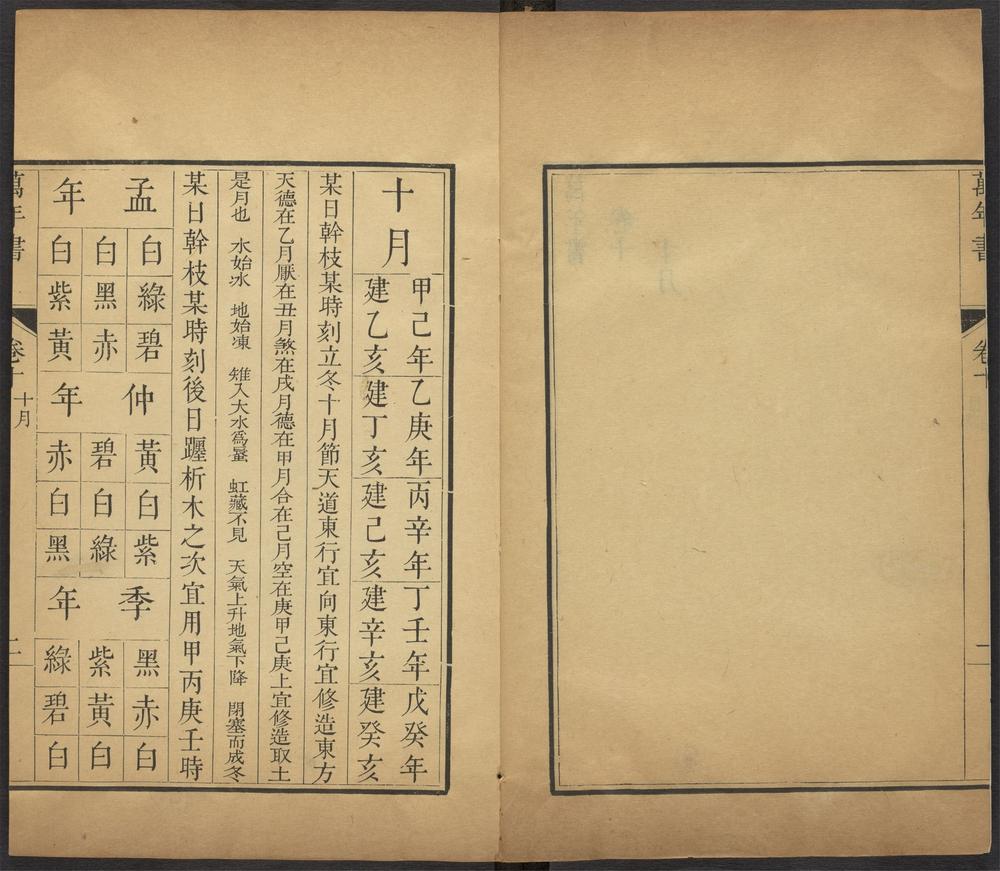 萬年書
卷十
十月
甲己年 乙庚年 丙辛年 丁壬年 戊癸年
建乙亥 建丁亥 建己亥 建辛亥 建癸亥
某日幹枝某時刻立冬十月節天道東行宜向東行宜修造東方
天德在乙月厭在丑月煞在戌月德在甲月合在己月空在庚甲己庚上宜修造取土
是月也 水始冰 地始凍 雉入大水爲蜃 虹藏不見 天氣上升地氣下降 閉塞而成冬
某日幹枝某時刻後日躔析木之次宜用甲丙庚壬時
孟年
白 白 白
綠 黑 紫
碧 赤 黃
仲年
黃 碧 赤
白 白 白
紫 綠 黑
季年
黑 紫 綠
赤 黃 碧
白 白 白
萬年書
卷十
十月